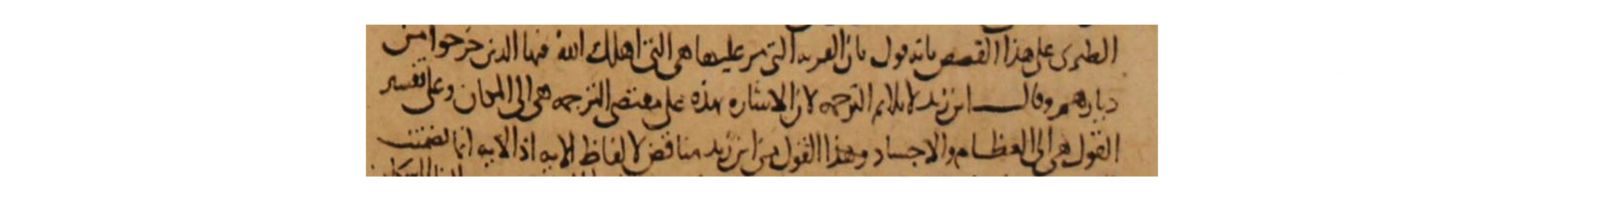 الطبرى على هذا القصص بانه قول بان القرية التى مر عليها هى التى اهلك الله فيها الذين خرجوا من
ديارهم وقال ابن زيد لا يلايم الترجمه لان الاشاره بهذه على مقتضى الترجمه هى الى المكان وعلى تفسير
القول هى الى العظام والاجساد وهذا القول من ابن زيد مناقض لالفاظ الايه اذ الايه انما تضمنت